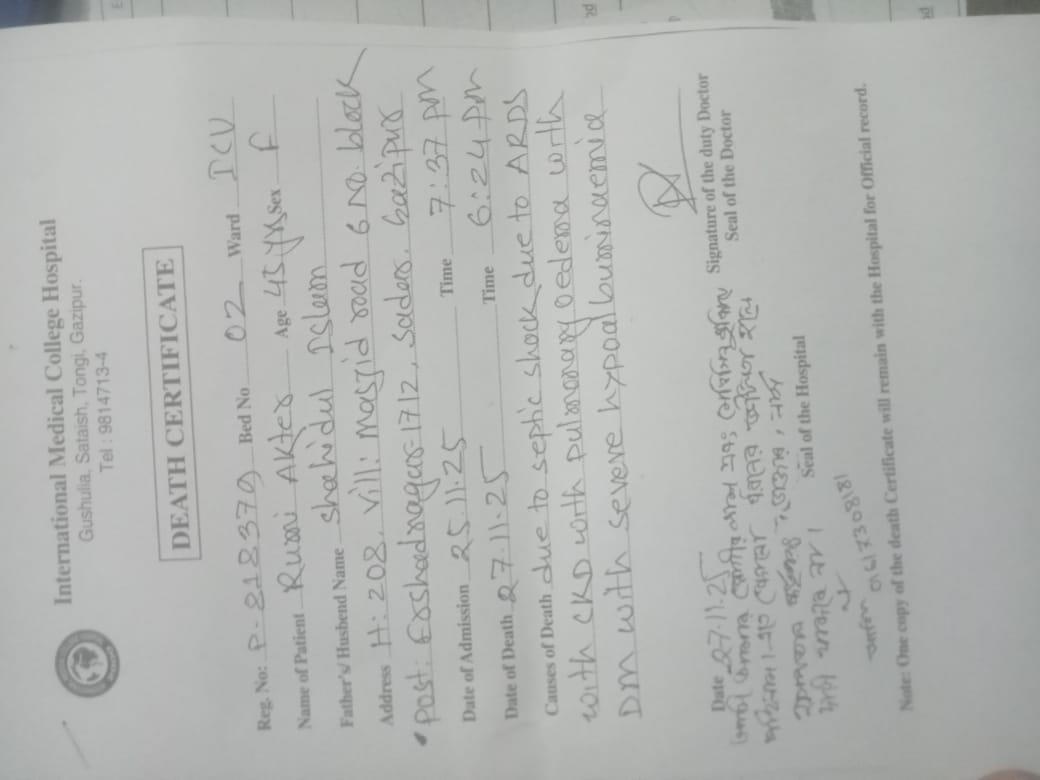 International Medical College Hospital
Gushulia, Sataish, Tongi, Gazipur.
Tel : 9814713-4
DEATH CERTIFICATE
Reg. No: P-818379 Bed No 02 Ward ICU
Name of Patient Rumi Akter Age 43 yrs Sex F
Father's/ Husbend Name Shahidul Islam
Address H: 208, Vill: Masjid road 6 No. block
Post: Ershadnagar-1712, Sadar, Gazipur
Date of Admission 25.11.25 Time 7:37 pm
Date of Death 27.11.25 Time 6:24 pm
Causes of Death due to septic shock due to ARDS
with CKD with pulmonary oedema with
DM with severe hypoalbuminaemia
Date 27.11.25 Signature of the duty Doctor
Seal of the Doctor
রোগীর
ডাক্তার, নার্স
Seal of the Hospital
দায়ী থাকবে না।
Note: One copy of the death Certificate will remain with the Hospital for Official record.